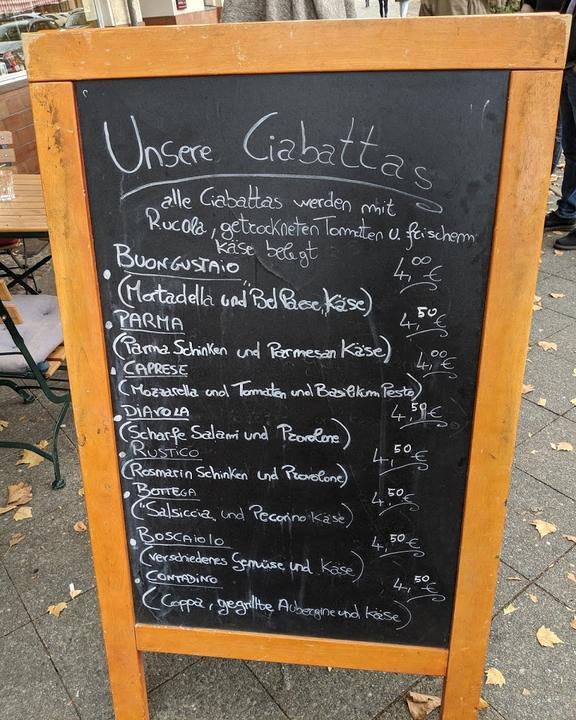 Unsere Ciabattas
alle Ciabattas werden mit
Rucola, getrockneten Tomaten u. frischem
Käse belegt
• BUONGUSTAIO 4,00 €
(Mortadella und "Bel Paese, Käse)
• PARMA 4,50 €
(Parma Schinken und Parmesan Käse)
• CAPRESE 4,00 €
(Mozzarella und Tomaten und Basilikum Pesto)
• DIAVOLA 4,50 €
(Scharfe Salami und Provolone)
• RUSTICO 4,50 €
(Rosmarin Schinken und Provolone)
• BOTTEGA 4,50 €
("Salsiccia, und Pecorino Käse)
• BOSCAIOLO 4,50 €
(verschiedenes Gemüse und Käse)
• CONTADINO 4,50 €
(Coppa, gegrillte Aubergine und Käse)